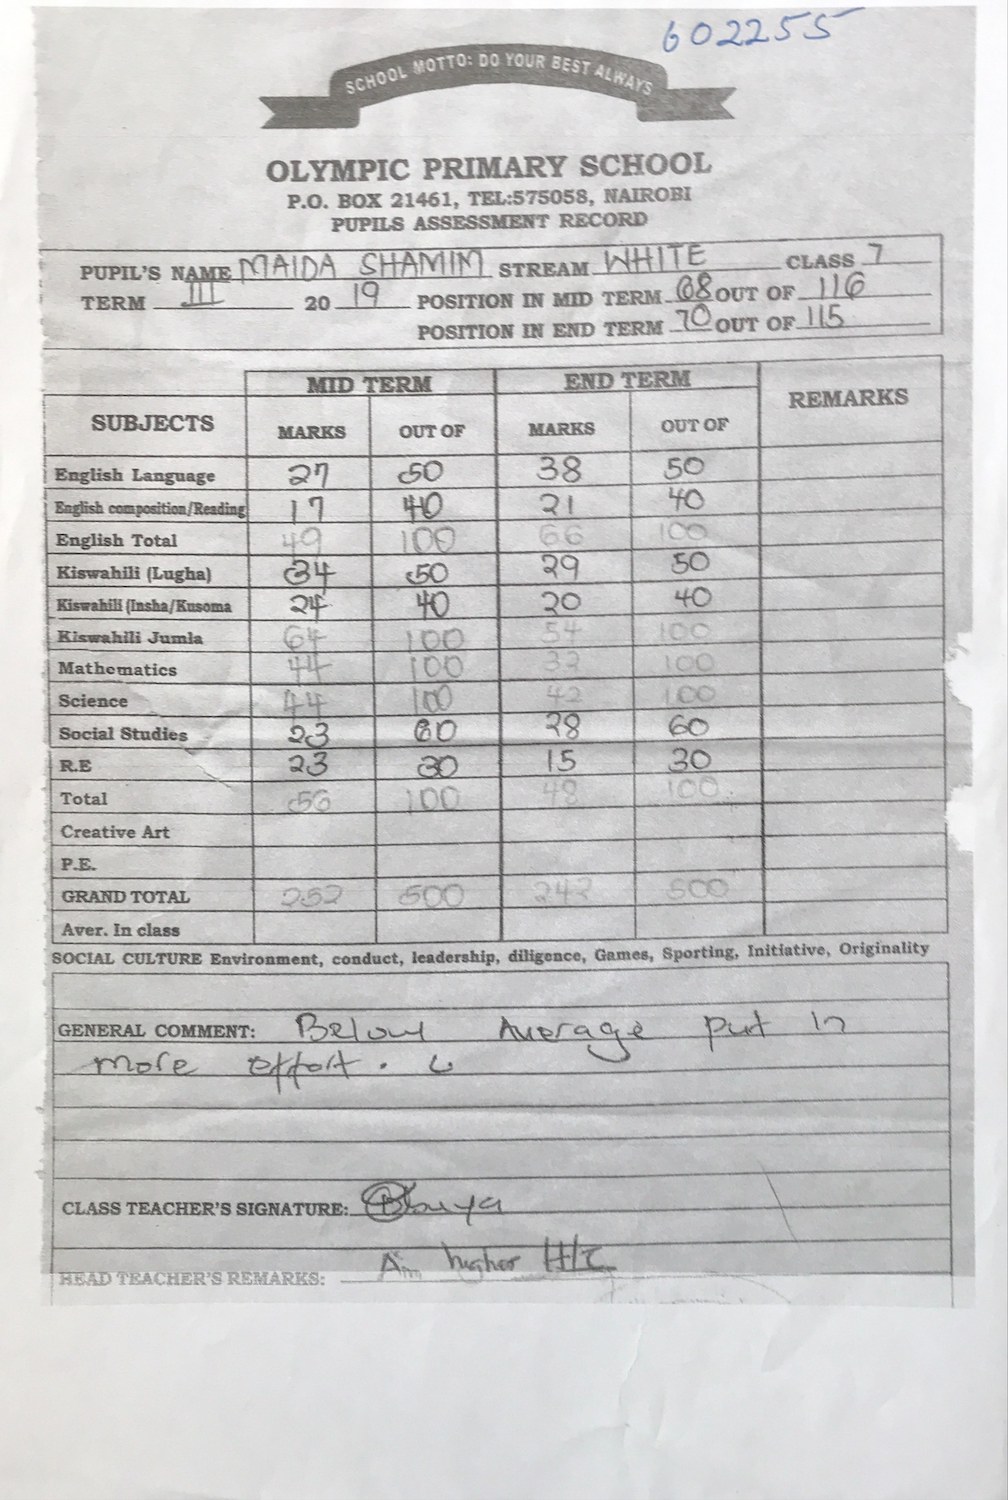 602255
SCHOOL MOTTO: DO YOUR BEST ALWAYS
OLYMPIC PRIMARY SCHOOL
P.O. BOX 21461, TEL:575058, NAIROBI
PUPILS ASSESSMENT RECORD
PUPIL'S NAME MAIDA SHAMIM STREAM WHITE CLASS 7
TERM III 20 19 POSITION IN MID TERM 68 OUT OF 116
POSITION IN END TERM 70 OUT OF 115
MID TERM END TERM REMARKS
SUBJECTS MARKS OUT OF MARKS OUT OF
English Language 27 50 38 50
English composition/Reading 17 40 21 40
English Total 49 100 66 100
Kiswahili (Lugha) 34 50 29 50
Kiswahili (Insha/Kusoma 24 40 20 40
Kiswahili Jumla 64 100 54 100
Mathematics 44 100 32 100
Science 44 100 42 100
Social Studies 23 60 28 60
R.E 23 30 15 30
Total 56 100 48 100
Creative Art
P.E.
GRAND TOTAL 252 500 242 500
Aver. In class
SOCIAL CULTURE Environment, conduct, leadership, diligence, Games, Sporting, Initiative, Originality
GENERAL COMMENT: Below Average put in
more effort.
CLASS TEACHER'S SIGNATURE:
Aim higher H/T
HEAD TEACHER'S REMARKS: